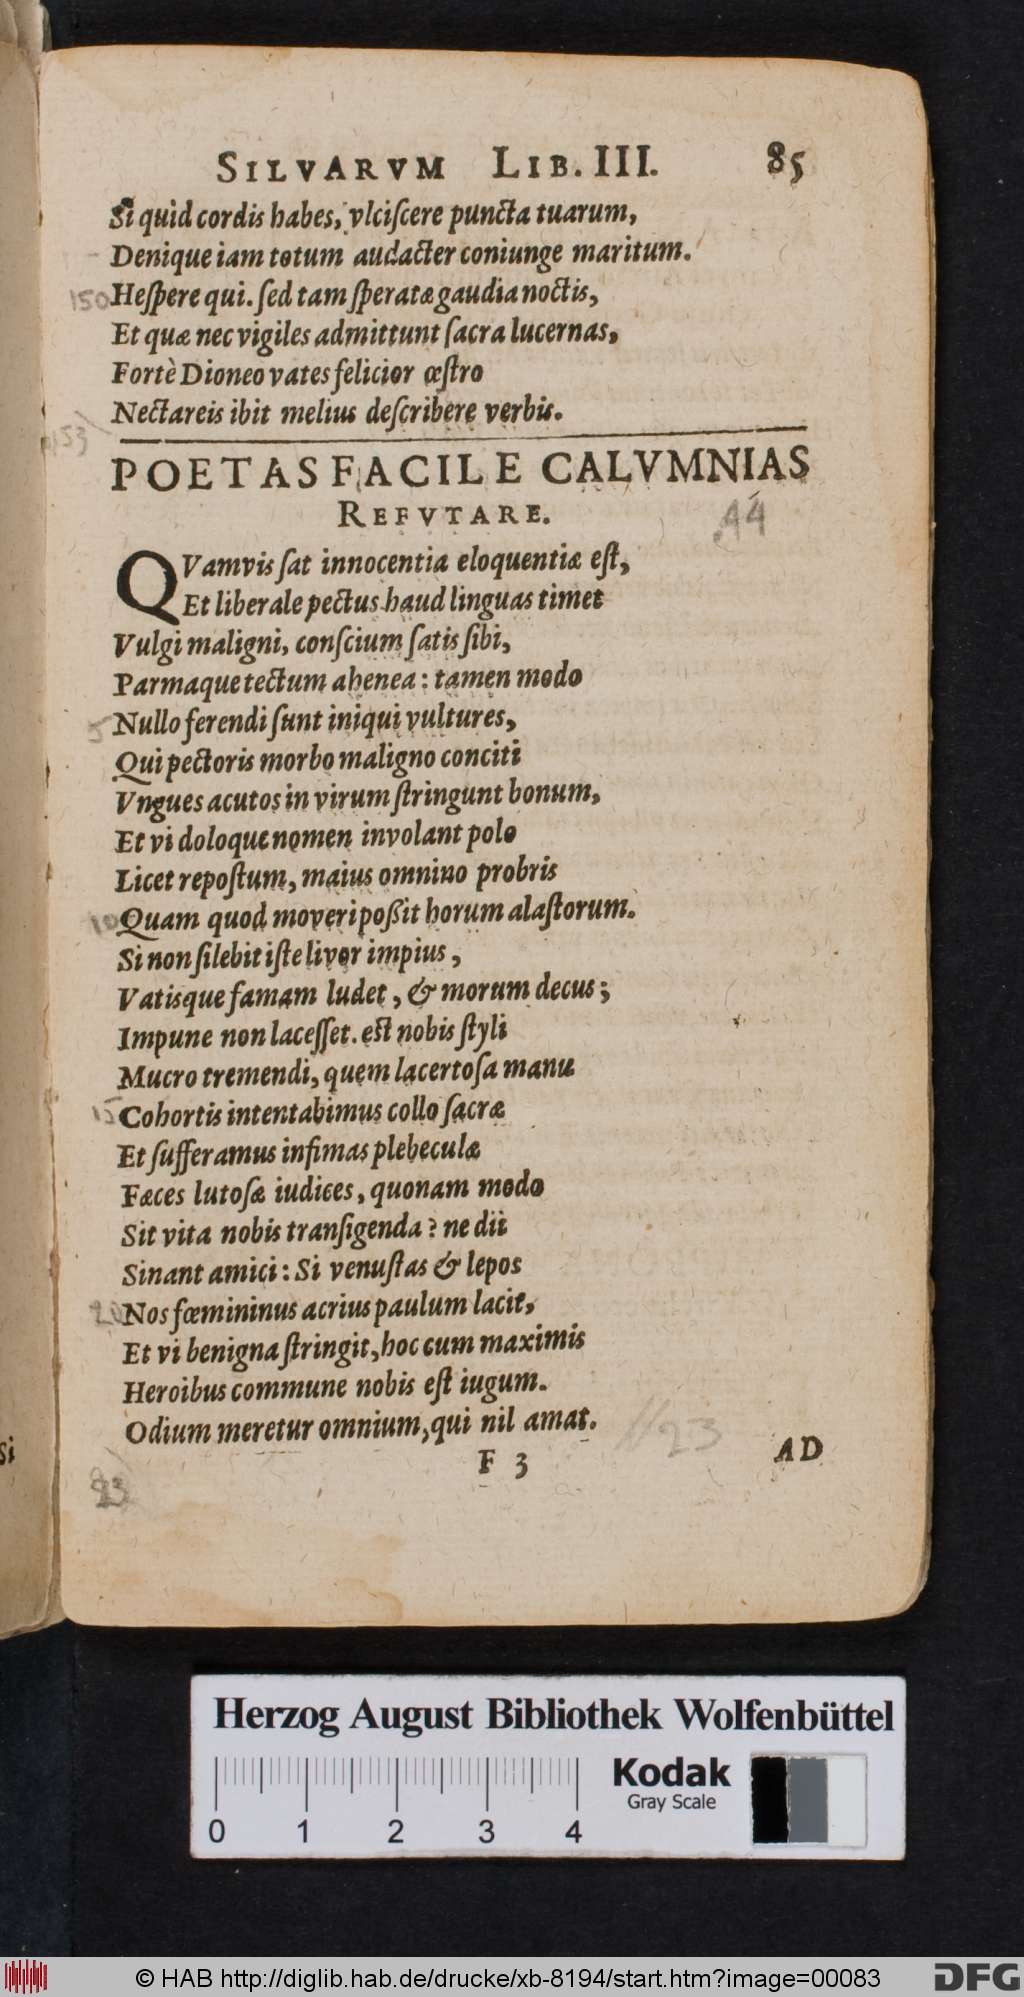 SILVARVM LIB. III. 85
Si quid cordis habes, vlciſcere puncta tuarum,
Denique iam totum audacter coniunge maritum.
150 Heſpere qui. ſed tam ſperatæ gaudia noctis,
Et quæ nec vigiles admittunt ſacra lucernas,
Fortè Dioneo vates felicior œſtro
Nectareis ibit melius deſcribere verbis.
153
POETAS FACILE CALVMNIAS
REFVTARE.
44
QVamvis ſat innocentia eloquentiæ eſt,
Et liberale pectus haud linguas timet
Vulgi maligni, conſcium ſatis ſibi,
Parmaque tectum ahenea: tamen modo
5 Nullo ferendi ſunt iniqui vultures,
Qui pectoris morbo maligno conciti
Vngues acutos in virum ſtringunt bonum,
Et vi doloque nomen involant polo
Licet repoſtum, maius omnino probris
10 Quam quod moveri poßit horum alaſtorum.
Si non ſilebit iſte livor impius,
Vatisque famam ludet, & morum decus;
Impune non laceſſet. eſt nobis ſtyli
Mucro tremendi, quem lacertoſa manu
15 Cohortis intentabimus collo ſacræ
Et ſufferamus infimas plebeculæ
Fæces lutoſæ iudices, quonam modo
Sit vita nobis tranſigenda? ne dii
Sinant amici: Si venuſtas & lepos
20 Nos fœmininus acrius paulum lacit,
Et vi benigna ſtringit, hoc cum maximis
Heroibus commune nobis eſt iugum.
Odium meretur omnium, qui nil amat.
//23
F 3 AD
23
si
Herzog August Bibliothek Wolfenbüttel
Kodak
Gray Scale
0 1 2 3 4
© HAB http://diglib.hab.de/drucke/xb-8194/start.htm?image=00083
DFG